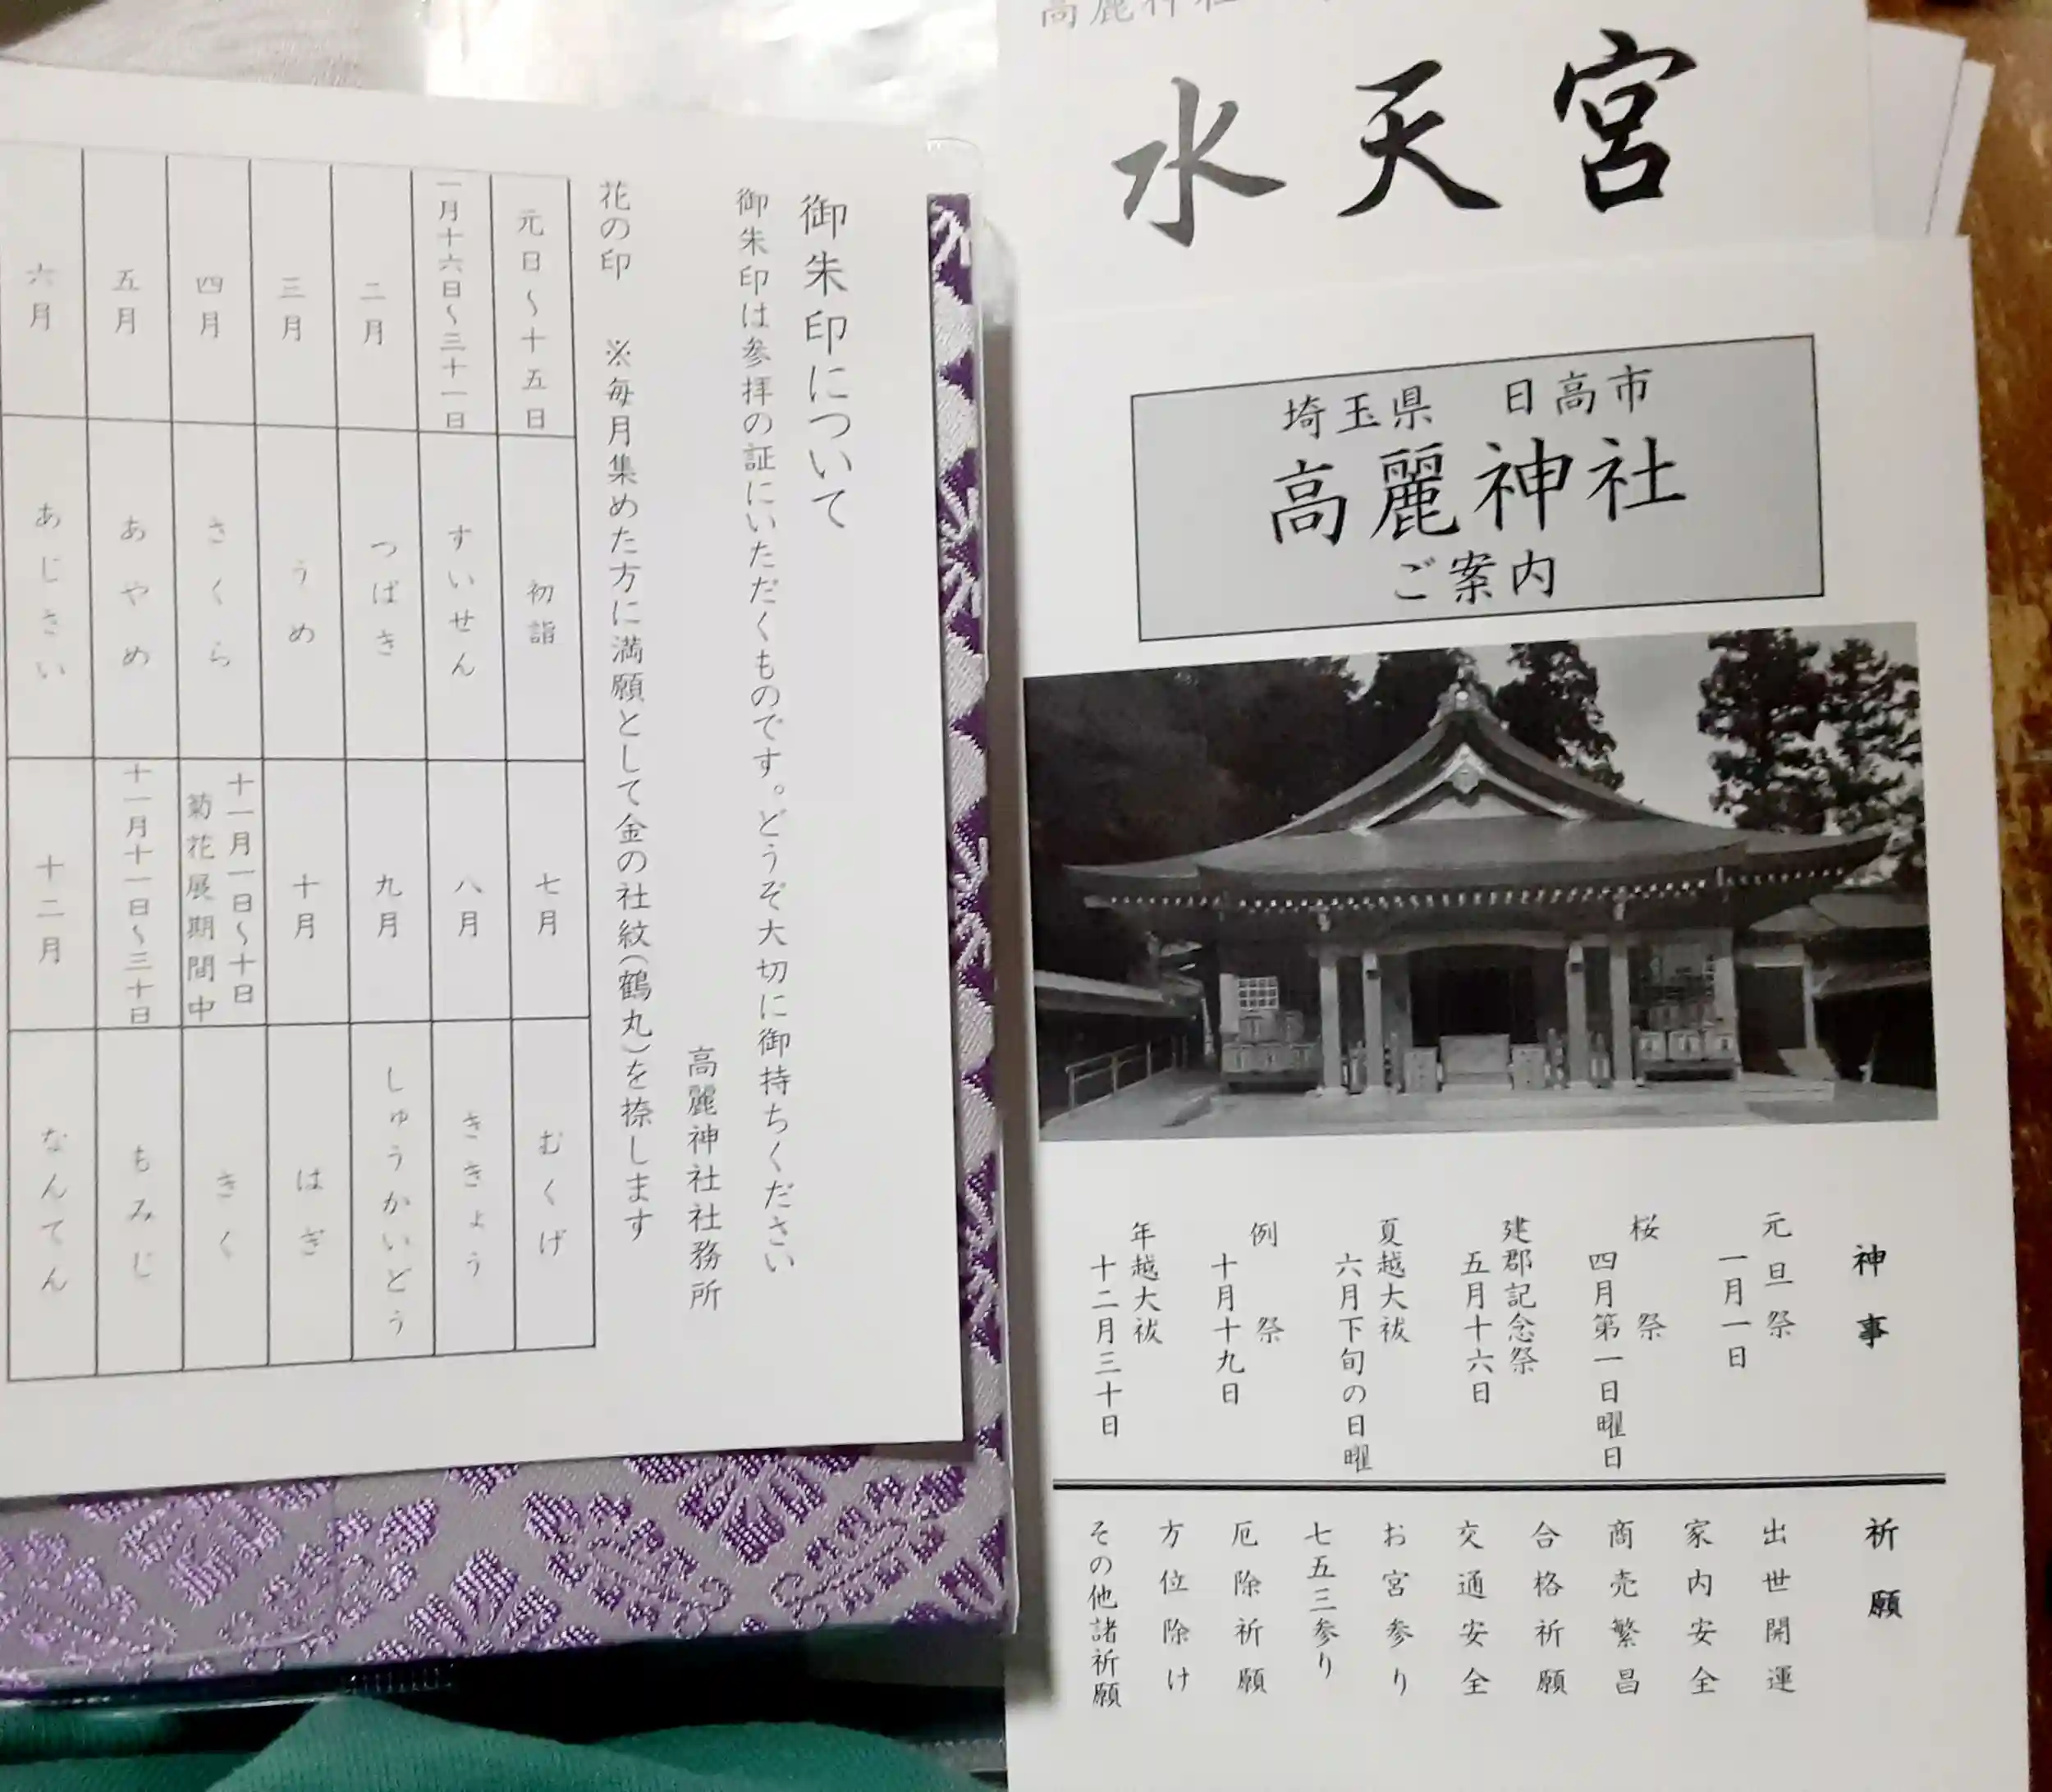 御朱印について
御朱印は参拝の証にいただくものです。どうぞ大切に御持ちください
高麗神社社務所
花の印 ※毎月集めた方に満願として金の社紋(鶴丸)を捺します
元日〜十五日 初詣 七月 むくげ
一月十六日〜三十一日 すいせん 八月 ききょう
二月 つばき 九月 しゅうかいどう
三月 うめ 十月 はぎ
四月 さくら 十一月一日〜十日 菊花展期間中 きく
五月 あやめ 十一月十一日〜三十日 もみじ
六月 あじさい 十二月 なんてん
高麗神社
水天宮
埼玉県 日高市
高麗神社
ご案内
神事
元旦祭
一月一日
桜祭
四月第一日曜日
建郡記念祭
五月十六日
夏越大祓
六月下旬の日曜
例祭
十月十九日
年越大祓
十二月三十日
祈願
出世開運
家内安全
商売繁昌
合格祈願
交通安全
お宮参り
七五三参り
厄除祈願
方位除け
その他諸祈願